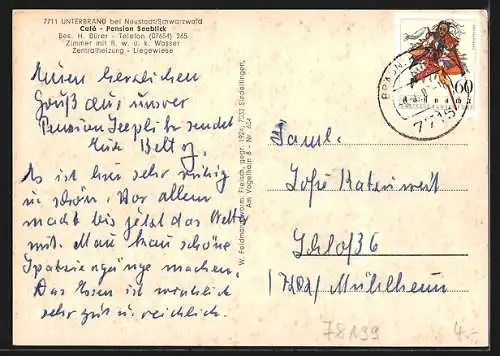 7711 UNTERBRAND bei Neustadt/Schwarzwald
Café - Pension Seeblick
Bes. H. Bürer - Telefon (07654) 265
Zimmer mit fl. w. u. k. Wasser
Zentralheizung - Liegewiese
Einen herzlichen
Gruß aus unserer
Pension Seeblick sendet
Es ist hier sehr ruhig
u. schön. Vor allem
macht bis jetzt das Wetter
mit. Man kann schöne
Spaziergänge machen.
Das Essen ist wirklich
sehr gut u. reichlich.
W. Feldmann, vorm. Fleisch, gegr. 1924, 7033 Sindelfingen,
Am Vogelhain 8 - Nr. 454
60
BRÄUN
7715
Faml.
Schloß 6
Mühlheim
78199
4.-